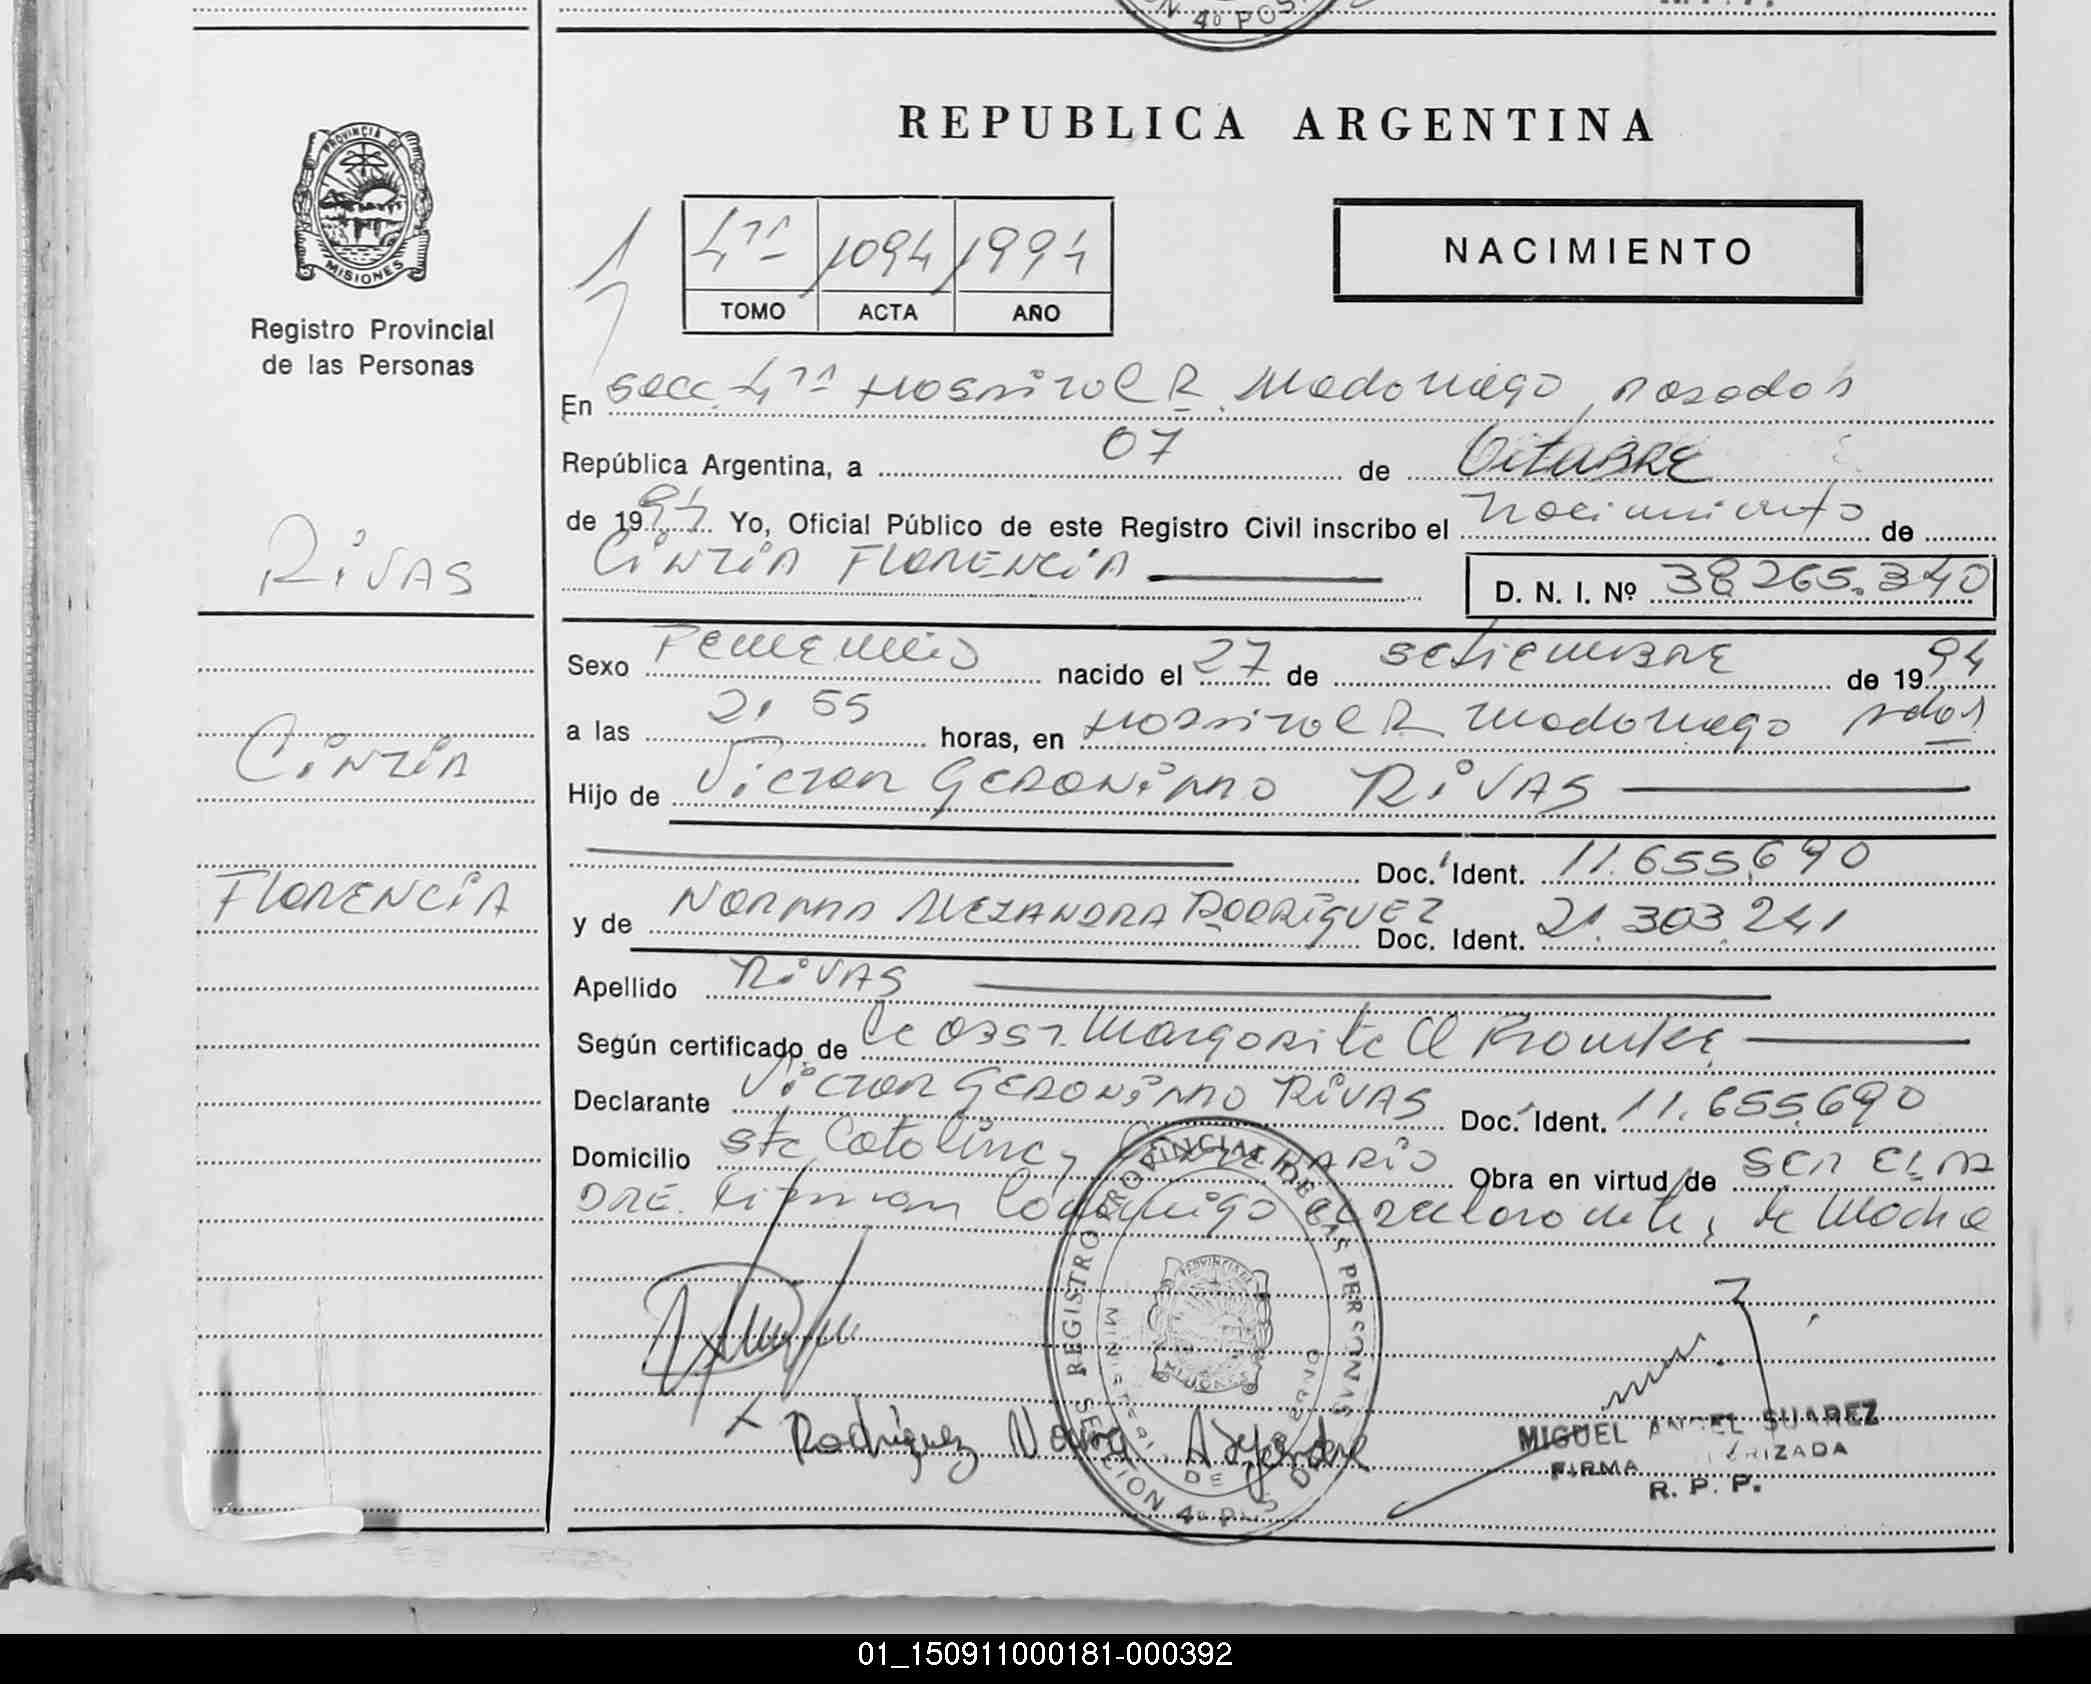 N 4º POS.
REPUBLICA ARGENTINA
PROVINCIA DE
MISIONES
Registro Provincial
de las Personas
4ta 1094 1994
TOMO ACTA AÑO
NACIMIENTO
En Secc. 4ta Hospital R. Madariaga, Posadas
República Argentina, a 07 de Octubre
de 1994 Yo, Oficial Público de este Registro Civil inscribo el Nacimiento de
RIVAS
CINZIA FLORENCIA
D. N. I. Nº 38265.340
Sexo Femenino nacido el 27 de setiembre de 1994
a las 21 55 horas, en Hospital R Madariaga Pdas
CINZIA
Hijo de Victor GERONIMO RIVAS
Doc. Ident. 11.655.690
FLORENCIA
y de NORMA ALEJANDRA RODRIGUEZ Doc. Ident. 21.303.241
Apellido RIVAS
Según certificado de la Obst. Margarita
Declarante Victor GERONIMO RIVAS Doc. Ident. 11.655.690
Domicilio Sta Catalina y Obra en virtud de SER EL PA
DRE. Firman Conmigo el declarante y la Madre
REGISTRO PROVINCIAL DE LAS PERSONAS
SECCION 4º
Rodriguez Norma Alejandra
MIGUEL ANGEL SUAREZ
FIRMA AUTORIZADA
R. P. P.
01_150911000181-000392